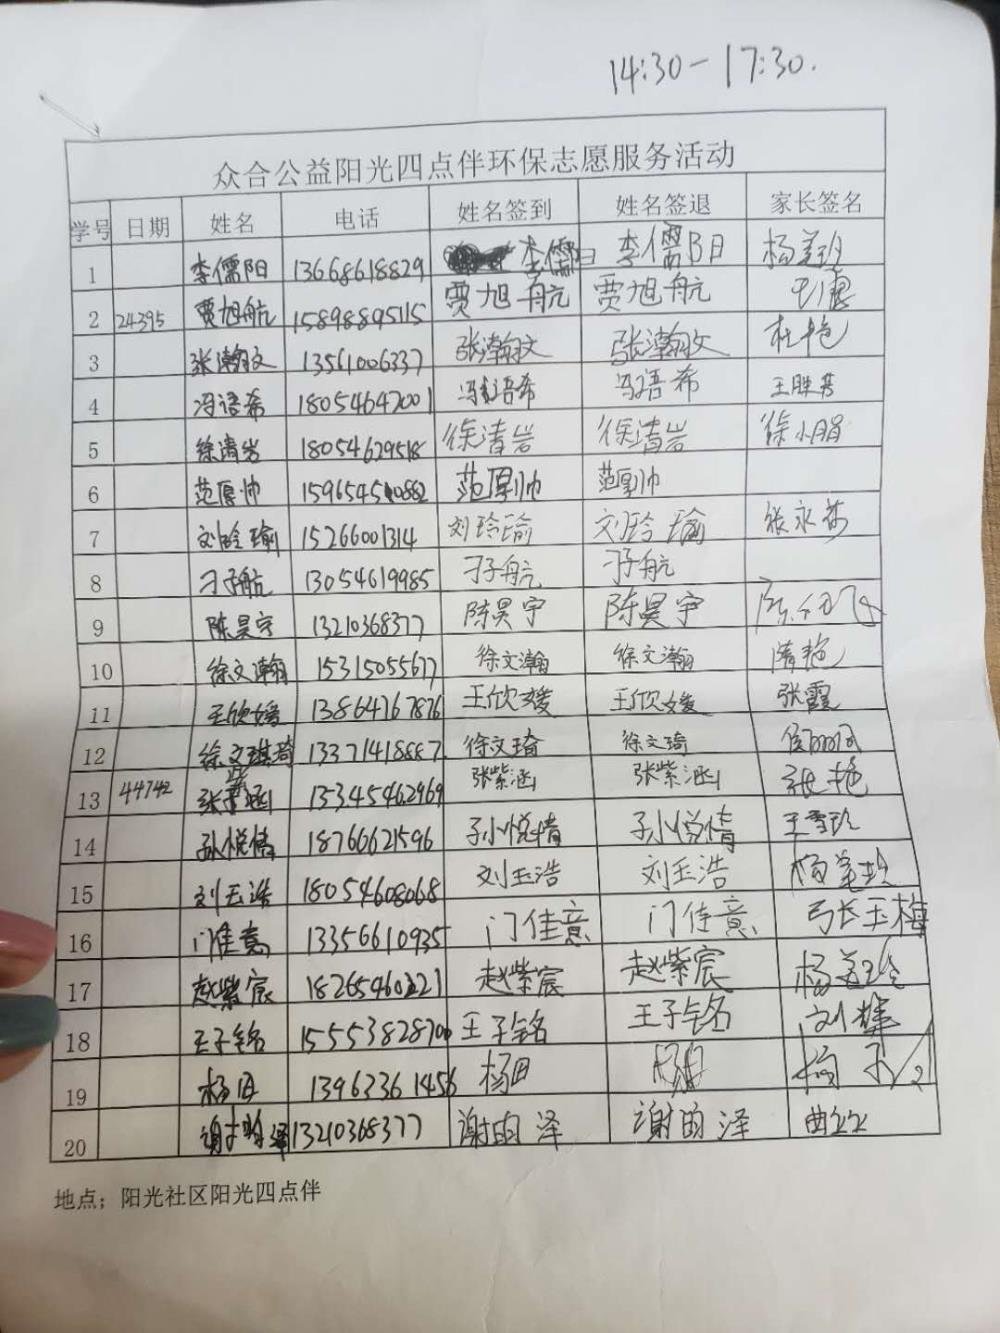 14:30-17:30.
众合公益阳光四点伴环保志愿服务活动
学号 日期 姓名 电话 姓名签到 姓名签退 家长签名
1 李儒阳 13668618829 李儒阳 李儒阳
2 24395 贾旭航 15898895115 贾旭航 贾旭航
3 张瀚文 13561006337 张瀚文 张瀚文 杜艳
4 冯语希 18054647001 冯语希 冯语希 王胜芳
5 徐清岩 18054629518 徐清岩 徐清岩 徐小娟
6 范厚帅 范厚帅 范厚帅
7 刘玲瑜 15266001314 刘玲瑜 刘玲瑜 张永莎
8 刁子航 13054619985 刁子航 刁子航
9 陈昊宇 13210368377 陈昊宇 陈昊宇
10 徐文瀚 15315055677 徐文瀚 徐文瀚 隋艳
11 王欣媛 13864767876 王欣媛 王欣媛 张霞
12 徐文琦 13371418887 徐文琦 徐文琦
13 44742 张紫涵 13545462969 张紫涵 张紫涵 张艳
14 孙悦情 18766621596 孙悦情 孙悦情 王雪玲
15 刘玉浩 18054608068 刘玉浩 刘玉浩
16 门佳意 13356610935 门佳意 门佳意 张玉梅
17 赵紫宸 赵紫宸 赵紫宸
18 王子铭 15553828700 王子铭 王子铭 刘辉
19 13963361456
20 13210368377 谢昀泽 谢昀泽
地点；阳光社区阳光四点伴